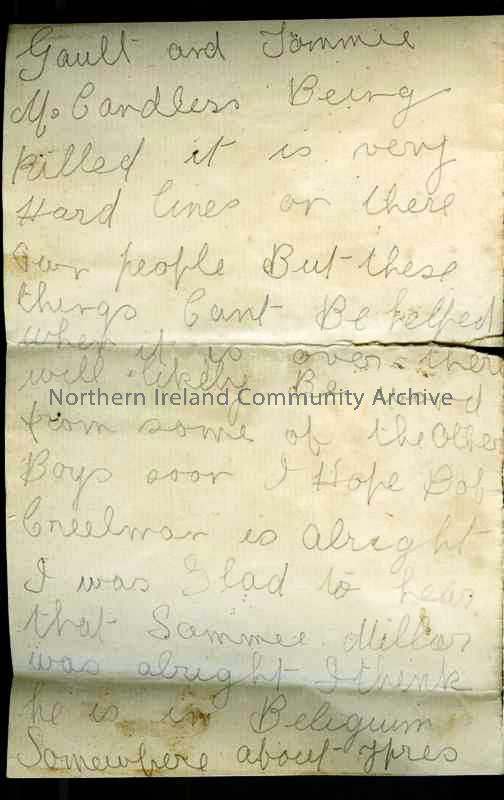 Gault and Tommie
Mc Candless Being
killed it is very
Hard lines on there
own people But these
things Cant Be helped
when it is over there
will likely Be word
Northern Ireland Community Archive
from some of the Other
Boys soon I Hope Bob
Creelman is alright
I was Glad to hear
that Sammie Millar
was alright I think
he is in Beliguim
Somewhere about Ypres